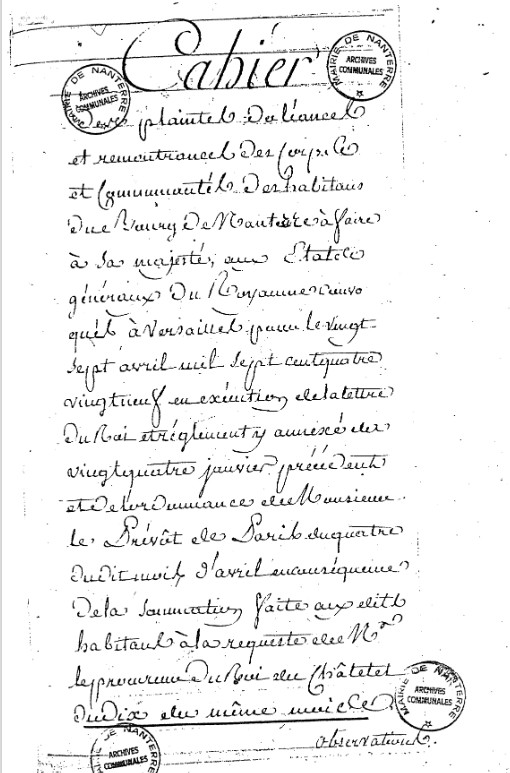 Cahier
MAIRIE DE NANTERRE
ARCHIVES
COMMUNALES
MAIRIE DE NANTERRE
ARCHIVES
COMMUNALES
Des plaintes Doléances
et remontrances des Corps
et Communautés Des habitans
Du Bourg De Nanterre à faire
à sa majesté, aux Etats
généraux Du Royaume convo
qués à Versailles pour le vingt
sept avril mil sept cent quatre
vingt neuf en exécution de la lettre
Du Roi et réglement y annexé du
vingt quatre janvier précédent
et de l'ordonnance de Monsieur
le Prévôt de Paris du quatre
Dudit mois d'avril en conséquence
De la sommation faite aux dits
habitans à la requeste de Mr
le procureur Du Roi du Châtelet
Du dix du même mois
MAIRIE DE NANTERRE
ARCHIVES
COMMUNALES
observations.
MAIRIE DE NANTERRE
ARCHIVES
COMMUNALES